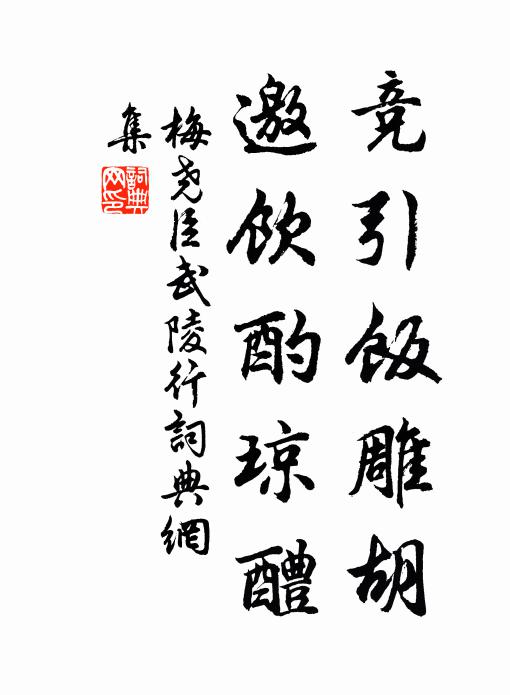 竞引飯雕胡
邀飲酌琼醴
梅尧臣武陵行詞典網
集
詞典
网印